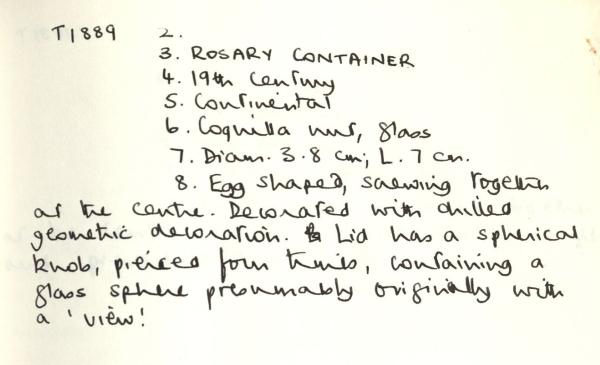 T1889 2.
3. ROSARY CONTAINER
4. 19th Century
5. Continental
6. Coquilla nut, glass
7. Diam. 3.8 cm; L. 7 cm.
8. Egg shaped, screwing together
at the centre. Decorated with drilled
geometric decoration. Lid has a spherical
knob, pierced four times, containing a
glass sphere presumably originally with
a 'view'.